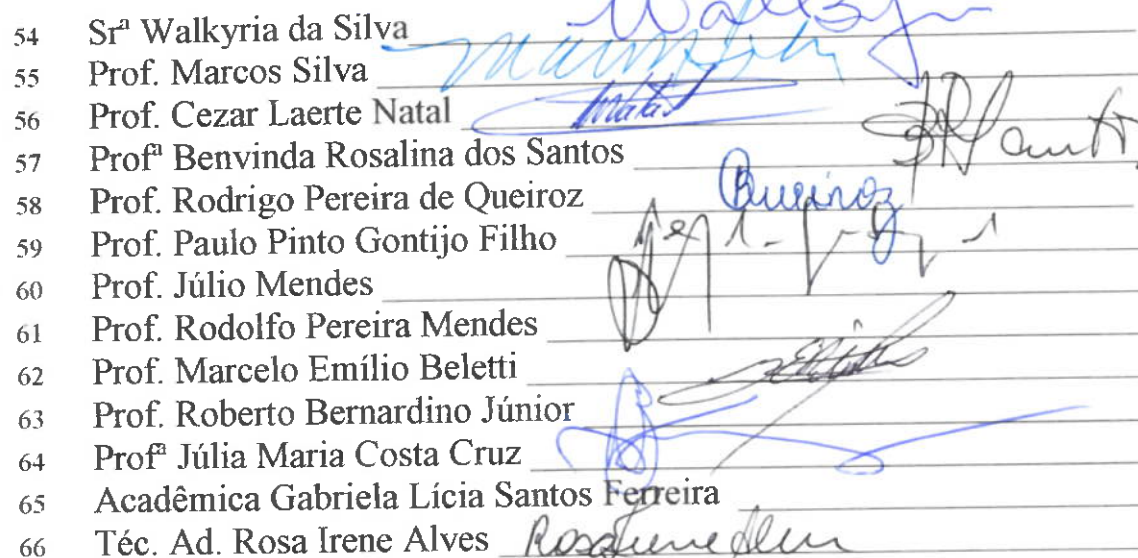 54 Srª Walkyria da Silva
55 Prof. Marcos Silva
56 Prof. Cezar Laerte Natal Natal
57 Profª Benvinda Rosalina dos Santos
58 Prof. Rodrigo Pereira de Queiroz Queiroz
59 Prof. Paulo Pinto Gontijo Filho
60 Prof. Júlio Mendes
61 Prof. Rodolfo Pereira Mendes
62 Prof. Marcelo Emílio Beletti
63 Prof. Roberto Bernardino Júnior
64 Profª Júlia Maria Costa Cruz
65 Acadêmica Gabriela Lícia Santos Ferreira
66 Téc. Ad. Rosa Irene Alves